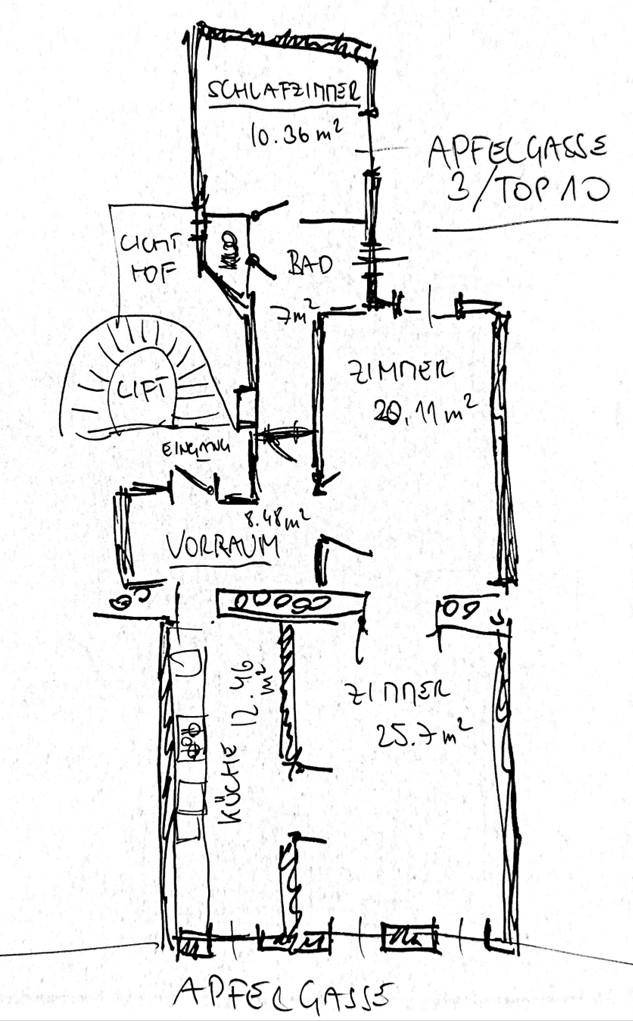 SCHLAFZIMMER
10.36m²
APFELGASSE
3/TOP 10
LICHT
HOF
BAD
7m²
ZIMMER
20,11m²
LIFT
EINGANG
8.48m²
VORRAUM
ZIMMER
25.7m²
KÜCHE 12.46
m²
APFELGASSE